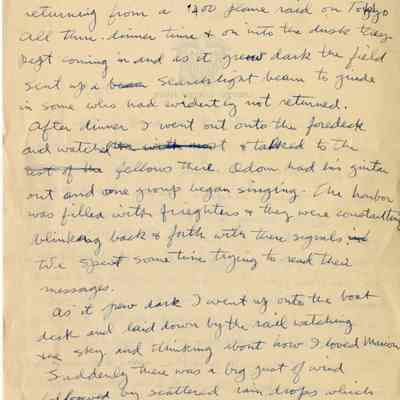 returning from a 400 plane raid on Tokyo
All thru dinner time & on into the dusk they
kept coming in and as it grew dark the field
sent up a beam searchlight beam to guide
in some who had evidently not returned.
After dinner I went out onto the foredeck
and watched & talked to the
rest of the fellows there. Odom had his guitar
out and one group began singing. The harbor
was filled with freighters & they were constantly
blinking back & forth with there signals
We spent some time trying to read their
messages.
As it grew dark I went up onto the boat
deck and laid down by the rail watching
the sky and thinking about how I loved Marion
Suddenly there was a big gust of wind
followed by scattered rain drops which